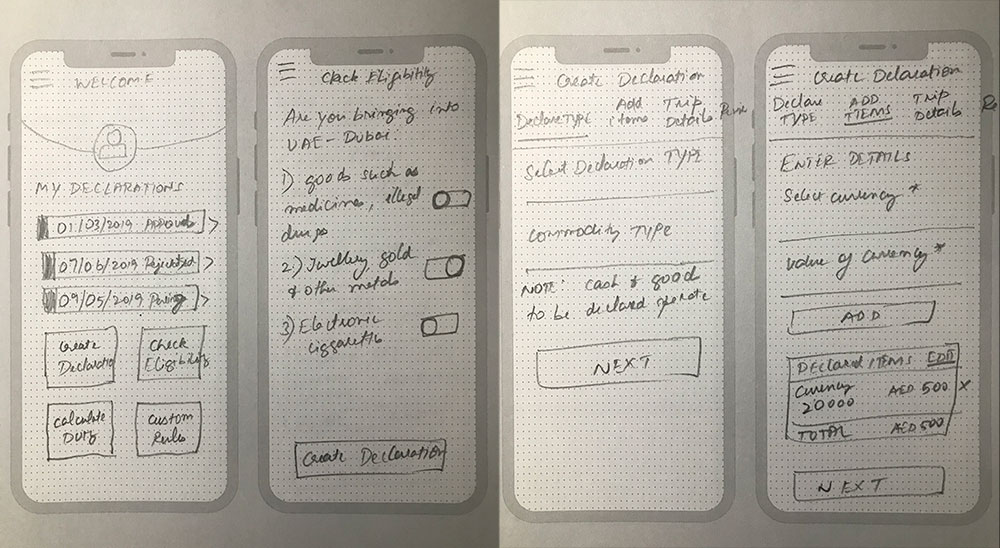 WELCOME
MY DECLARATIONS
01/03/2019 Approved >
07/06/2019 Rejected >
09/05/2019 >
Create
Declaration
Check
Eligibility
calculate
DUTY
custom
Rules
Check Eligibility
Are you bringing into
UAE - Dubai:
1) goods such as
medicines, illegal
drugs
2) Jwellery, gold
& other metals
3) Electronic
Ciggarette
Create Declaration
Create Declaration
Declare TYPE
Add
items
Trip
Details
Select Declaration TYPE
Commodity TYPE
NOTE: cash & good
to be declared
NEXT
Create Declaration
Declare
TYPE
ADD
ITEMS
Trip
Details
Re
ENTER DETAILS
Select currency *
Value of Currency *
ADD
DEClared ITEMS EDIT
Currency
20000
AED 500 x
TOTAL AED 500
NEXT